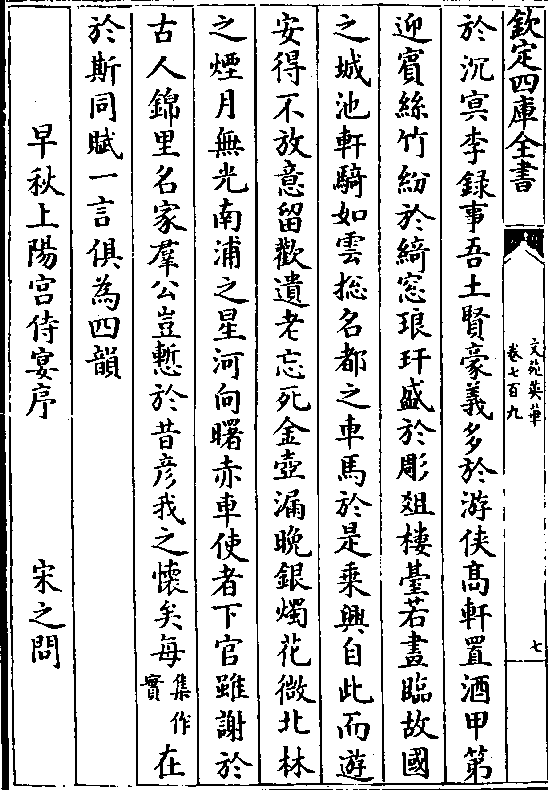 欽定四庫全書
文苑英華
卷七百九
七
於沉㝠李録事吾土賢豪義多於游俠髙軒置酒甲第
迎賓絲竹紛於綺窓琅玕盛於彫俎棲䑓若畫臨故國
之城池軒騎如雲揔名都之車馬於是乘興自此而遊
安得不放意留歡遺老忘死金壺漏晚銀燭花微北林
之煙月無光南浦之星河向曙赤車使者下官雖謝於
古人錦里名家羣公豈慙於昔彦我之懷矣每集作實在
於斯同賦一言俱為四韻
早秋上陽宫侍宴序 宋之問